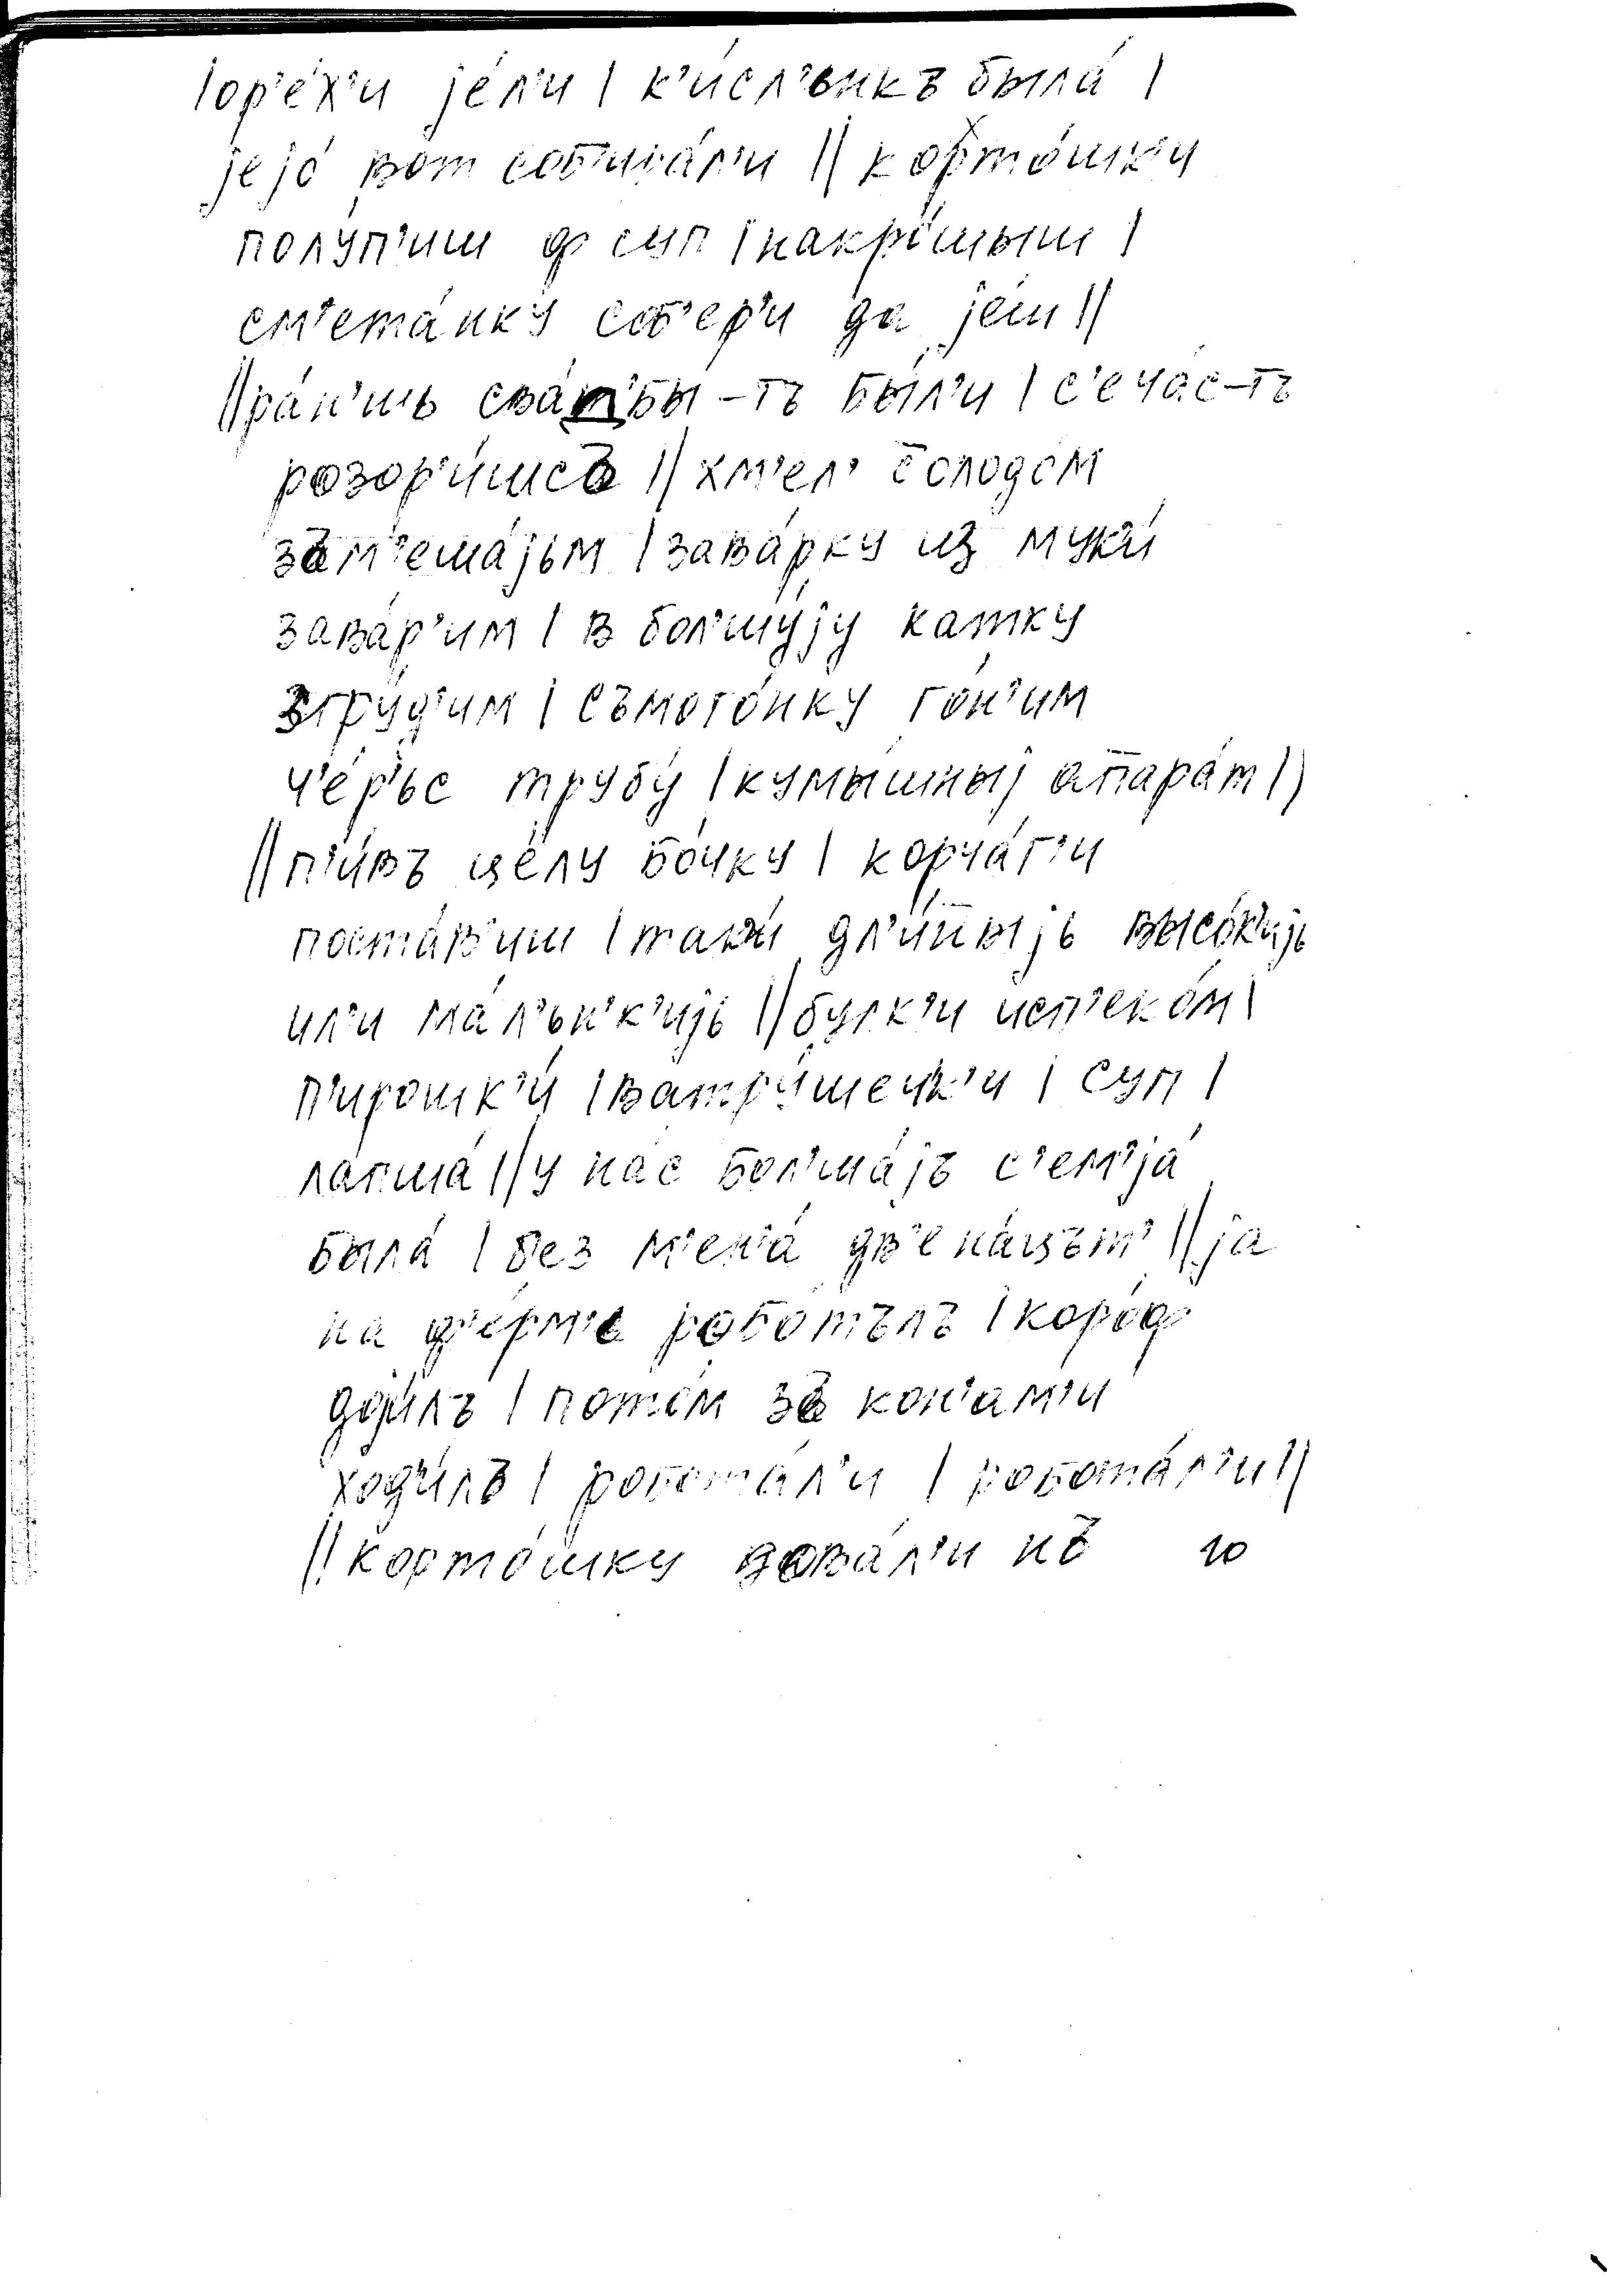 |ор'е́х'и је́л'и | к'и́сл'ьикъ была́ |
јејо́ вот соб'ира́л'и || корто́шк'и
полу́п'иш ф суп | накро́шыш |
см'ета́нку соб'ер'и да је́ш ||
|| ра́н'шь сва́т'бы́-тъ бы́л'и | с'еча́с-тъ
розор'и́шсъ || хм'ел' солодом
зам'еша́јьм | зава́рку из мук'и́
зава́р'им | в бол'шу́ју катку
згру́д'им | съмого́нку го́н'им
ч'е́р'ьс трубу́ | кумы́шныј апара́т ||
|| п'и́въ це́лу бо́чку | корча́г'и
поста́в'иш | так'и́ дл'и́н̄ыјь высо́к'ијь
ил'и ма́л'ьн'к'ијь || булк'и исп'еко́м |
п'ирошк'и́ | ватру́шечк'и | суп |
лапша́ || у нас бол'ша́јъ с'ем'ја́
была́ | без м'ен'а́ дв'ена́цът' || ја
на ф'е́рм'е робо́тълъ | коро́ф
доји́лъ | пото́м за кон'ам'и
ход'и́лъ | робота́л'и | робота́л'и ||
|| корто́шку довал'и нъ 10